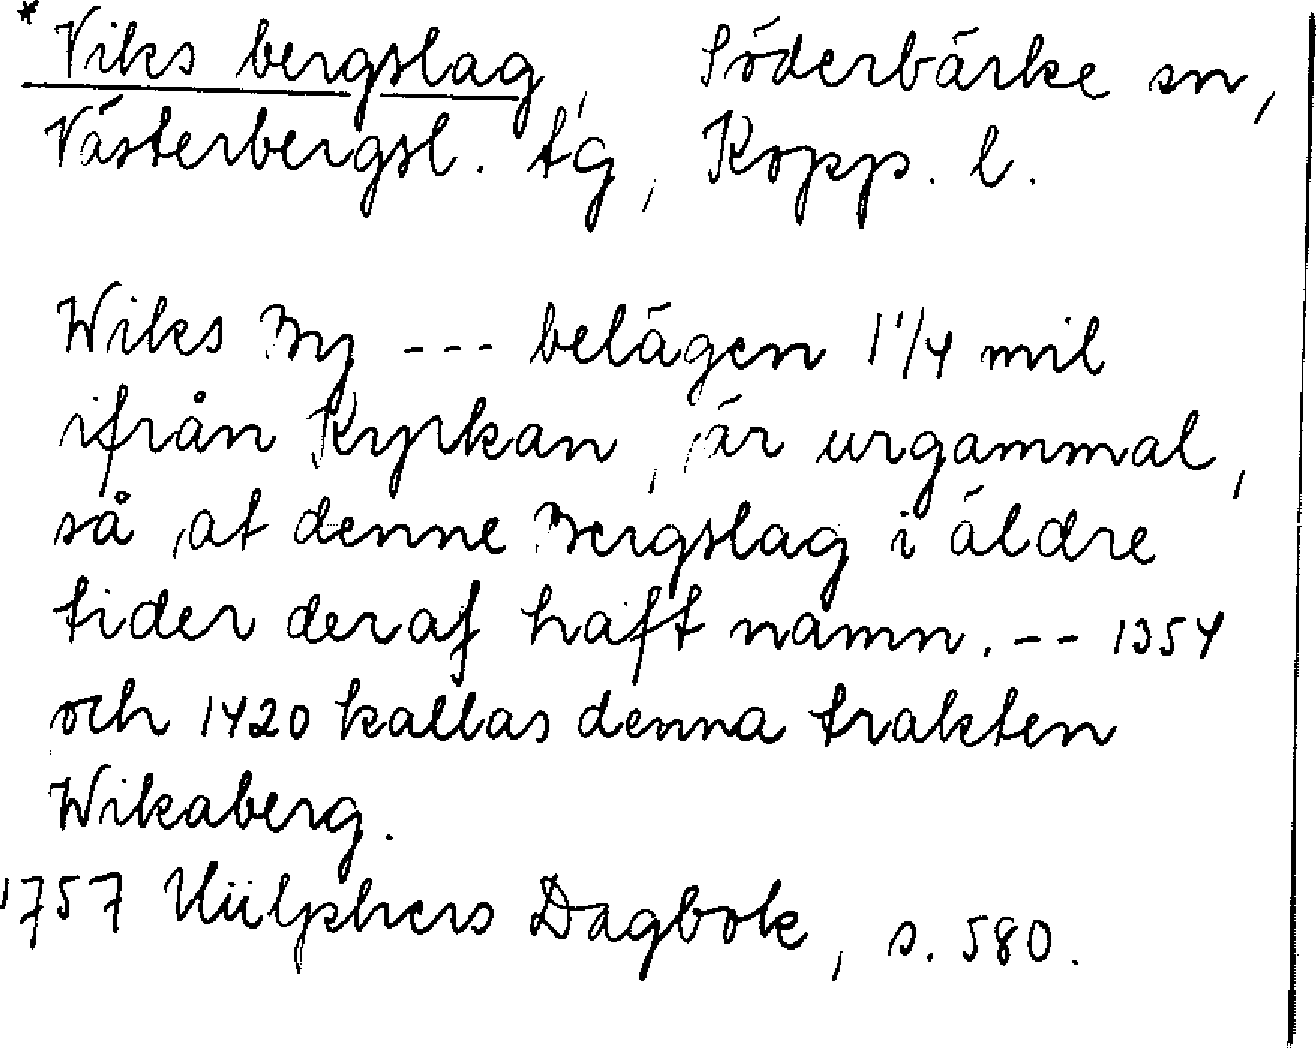 * Viks bergslag, Söderbärke sn,
Västerbergsl. tg, Kopp. l.
Wiks By --- belägen 1 1/4 mil
ifrån Kyrkan, är urgammal,
så at denne Bergslag i äldre
tider deraf haft namn. -- 1354
och 1420 kallas denna trakten
Wikaberg.
1757 Hülphers Dagbok, s. 580.